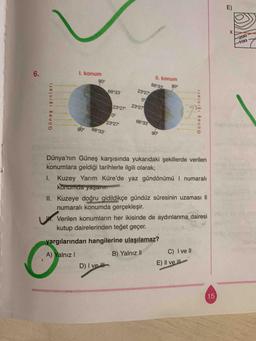 E)
X
200
6.
I. konum
II. konum
90°
66°33'
23°27'
0°
23°27'
66°33'
90°
66°33'
90°
23°27'
0°
23°27'
66°33'
90°
Güneş ışınları
Güneş ışınları
Dünya'nın Güneş karşısında yukarıdaki şekillerde verilen
konumlara geldiği tarihlerle ilgili olarak;
I. Kuzey Yarım Küre'de yaz gündönümü I numaralı
konumda yaşanır.
II. Kuzeye doğru gidildikçe gündüz süresinin uzaması II
numaralı konumda gerçekleşir.
III. Verilen konumların her ikisinde de aydınlanma dairesi
kutup dairelerinden teğet geçer.
yargılarından hangilerine ulaşılamaz?
A) Yalnız I
B) Yalnız II
C) I ve II
D) I ve III
E) II ve III
15